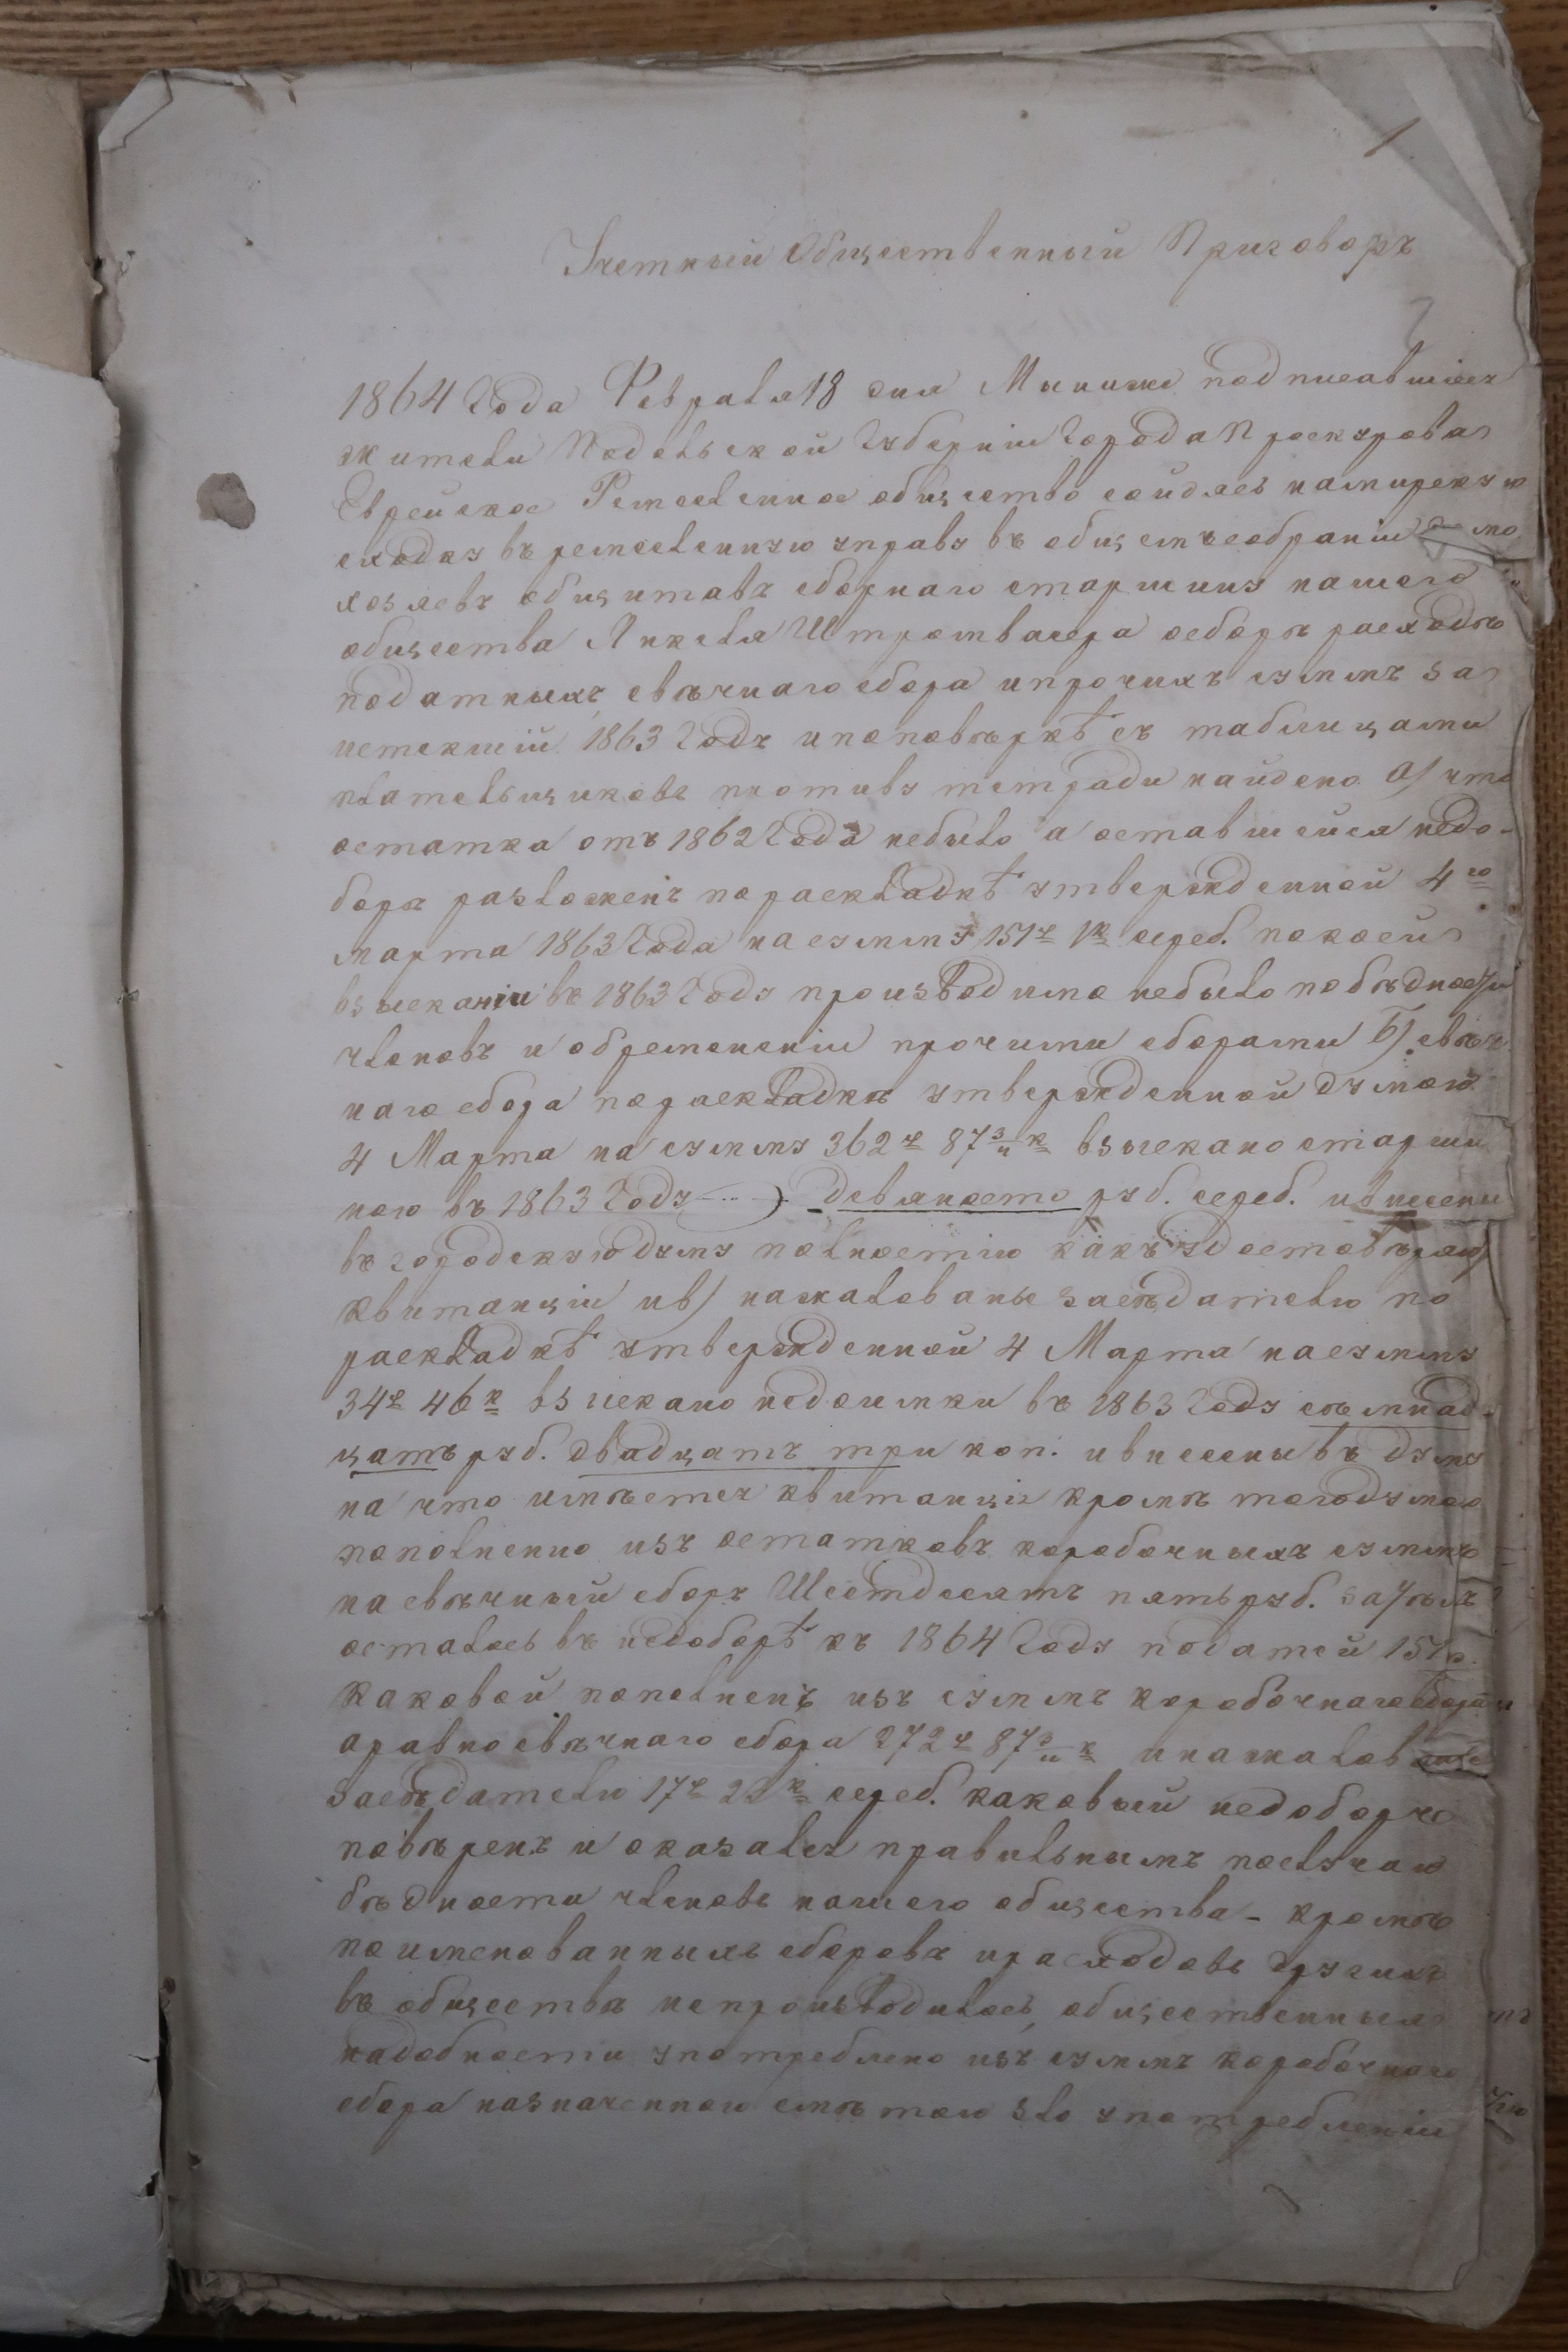 1
Учетный Общественный Приговоръ
1864 Года Февраля 18 дня Мы ниже подписавшіеся
жители Подольской Губерніи Города Проскурова
Еврейское Ремесленное общество сойдясь на мирскую
сходку въ ремесленную управу въ общемъ собраніи
хозяевъ общитавъ сборнаго старшину нашего
общества Янкеля Штромвасера о сборѣ расходѣ
податныхъ, свѣчнаго сбора и прочихъ суммъ за
истекшій 1863 Годъ и по повѣркѣ съ таблицами
плательщиковъ противу тетради найдено А) что
остатка отъ 1862 Года небыло а оставшейся недо-
боръ разложенъ по раскладкѣ утвержденной 4го
марта 1863 Года на сумму 151 р 1 к сереб. по коей
взысканіи въ 1863 Году производимо небыло по бѣдности
членовъ и обремененіи прочими сборами Б) свѣч
наго сбора по раскладкѣ утвержденной думою
4 Марта на сумму 362 р 87 3/4 к взыскано старши
ною въ 1863 Году девяносто руб. сереб. и внесены
въ городскую думу полностію какъ удостовѣряютъ
квитанціи и в) на жалованье засѣдателю по
раскладкѣ утвержденной 4 Марта на сумму
34 р 46 к взыскано недоимки въ 1863 Году семнад-
цать руб. двадцать три коп. и внесены въ думу
на что имѣется квитанція кромѣ того думою
пополнено изъ остатковъ коробочныхъ суммъ
на свѣчный сборъ Шестдесятъ пять руб. затѣмъ
осталось въ недоборѣ къ 1864 Году податей 151 р.
каковой пополненъ изъ суммъ коробочнаго сбора
аравно свѣчнаго сбора 272 р 87 3/4 к и на жалованье
засѣдателю 17 р 23 к сереб. каковый недоборъ
повѣренъ и оказался правильнымъ по случаю
бѣдности членовъ нашего общества - кромѣ
поименованныхъ сборовъ и расходовъ другихъ
въ обществѣ непроизводилось, общественныя
надобности употреблено изъ суммъ коробочнаго
сбора назначенною смѣтою зло употребленіи